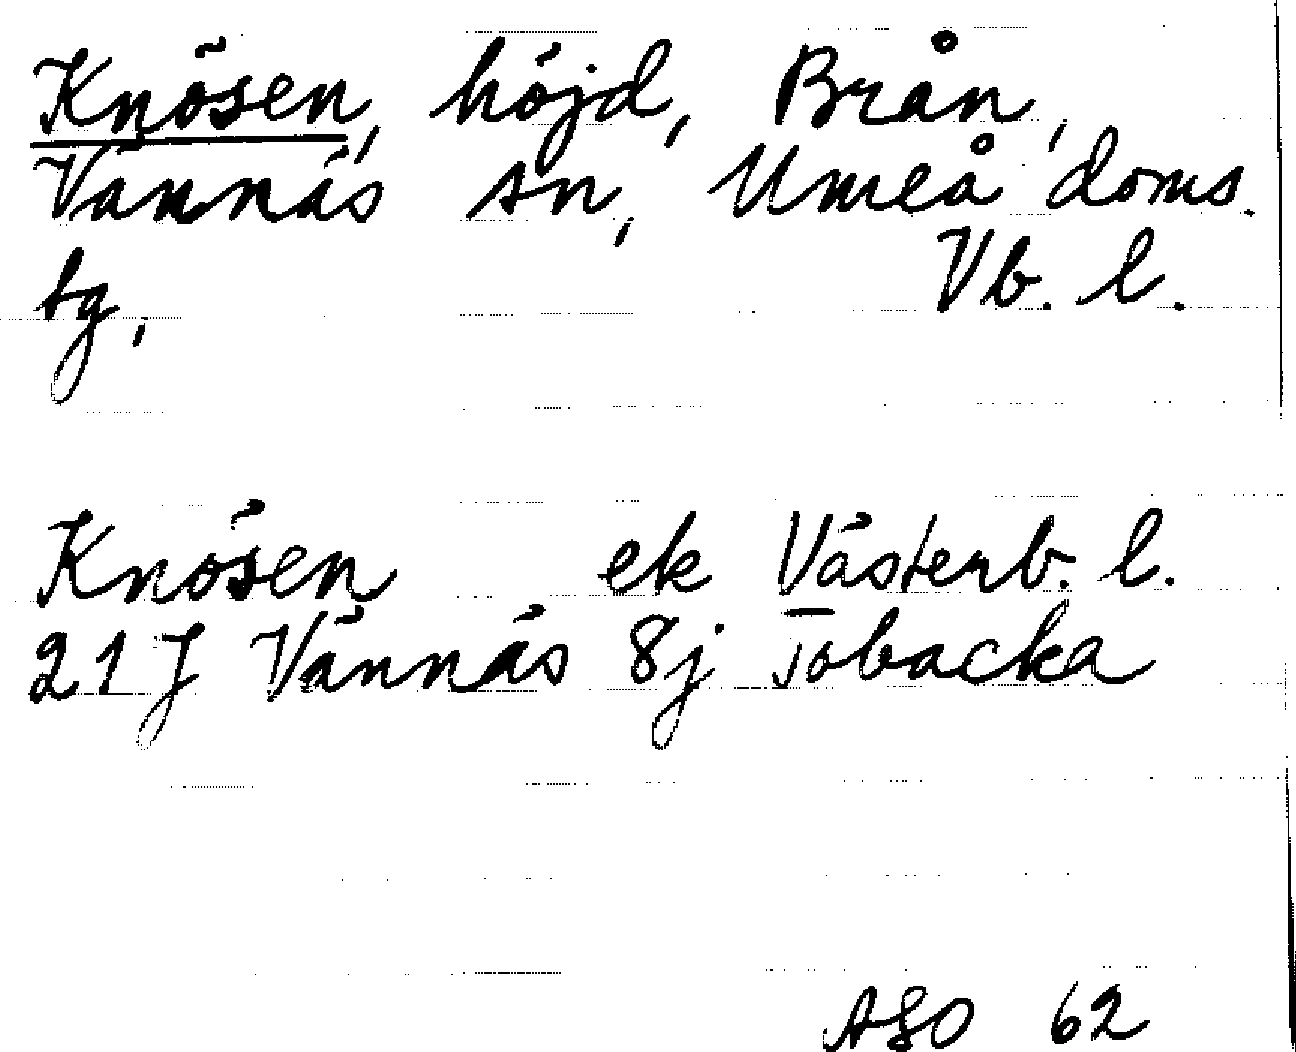 Knösen, höjd, Brån,
Vännäs sn, Umeå doms.
tg, Vb. l.
Knösen ek Västerb. l.
21 J Vännäs 8j Tobacka
ASO 62